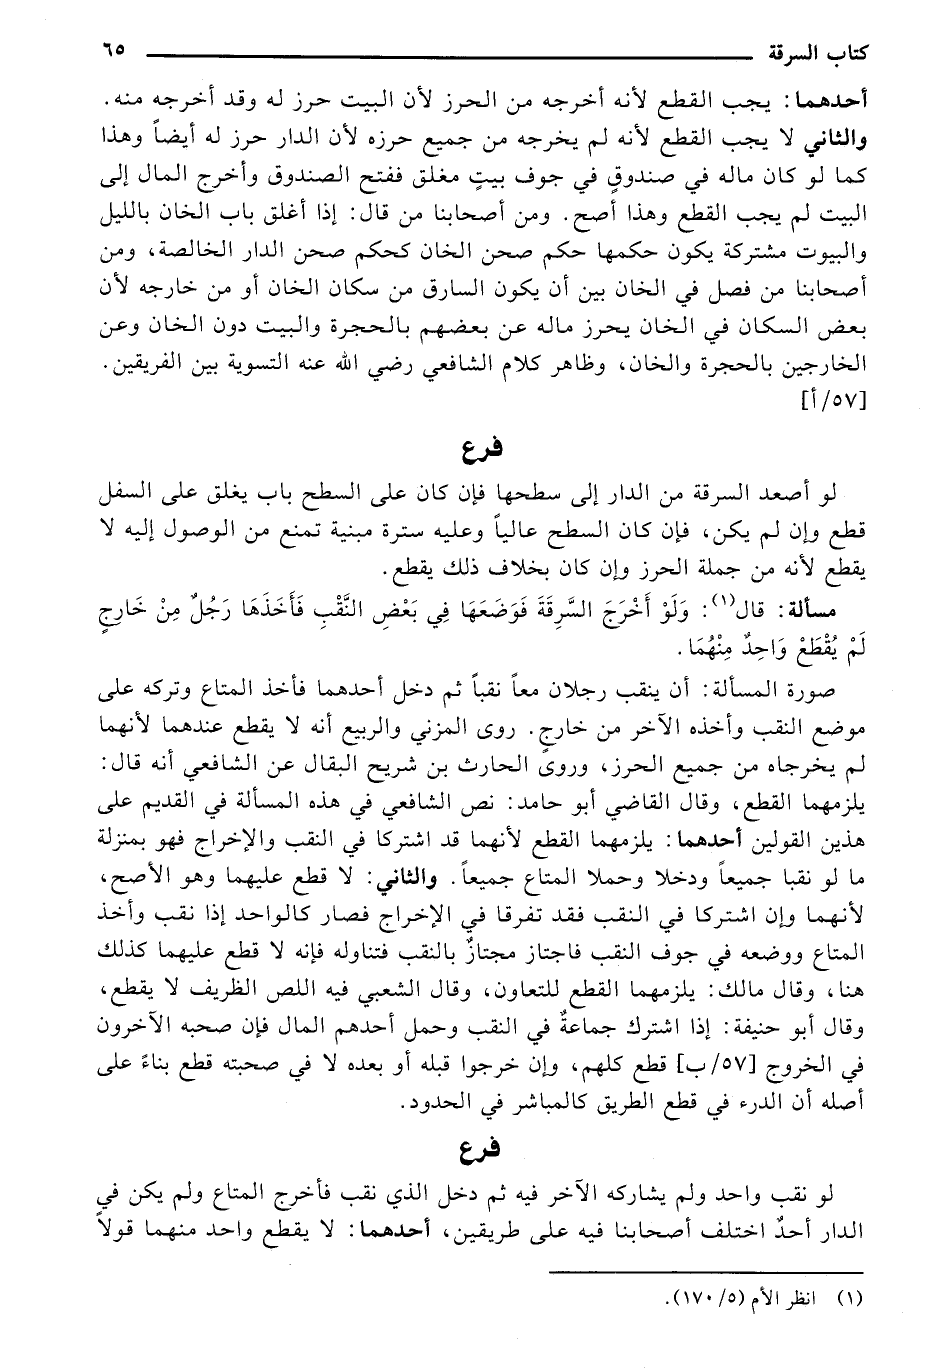 كتاب السرقة ٦٥
أحدهما: يجب القطع لأنه أخرجه من الحرز لأن البيت حرز له وقد أخرجه منه.
والثاني لا يجب القطع لأنه لم يخرجه من جميع حرزه لأن الدار حرز له أيضاً وهذا
كما لو كان ماله في صندوقٍ في جوف بيتٍ مغلق ففتح الصندوق وأخرج المال إلى
البيت لم يجب القطع وهذا أصح. ومن أصحابنا من قال: إذا أغلق باب الخان بالليل
والبيوت مشتركة يكون حكمها حكم صحن الخان كحكم صحن الدار الخالصة، ومن
أصحابنا من فصل في الخان بين أن يكون السارق من سكان الخان أو من خارجه لأن
بعض السكان في الخان يحرز ماله عن بعضهم بالحجرة والبيت دون الخان وعن
الخارجين بالحجرة والخان، وظاهر كلام الشافعي رضي الله عنه التسوية بين الفريقين.
[٥٧/أ]
فرع
لو أصعد السرقة من الدار إلى سطحها فإن كان على السطح باب يغلق على السفل
قطع وإن لم يكن، فإن كان السطح عالياً وعليه سترة مبنية تمنع من الوصول إليه لا
يقطع لأنه من جملة الحرز وإن كان بخلاف ذلك يقطع.
مسألة: قال(١): وَلَوْ أَخْرَجَ السَّرِقَةَ فَوَضَعَهَا فِي بَعْضِ النَّقْبِ فَأَخَذَهَا رَجُلٌ مِنْ خَارِجٍ
لَمْ يُقْطَعْ وَاحِدٌ مِنْهُمَا.
صورة المسألة: أن ينقب رجلان معاً نقباً ثم دخل أحدهما فأخذ المتاع وتركه على
موضع النقب وأخذه الآخر من خارجٍ. روى المزني والربيع أنه لا يقطع عندهما لأنهما
لم يخرجاه من جميع الحرز، وروى الحارث بن شريح البقال عن الشافعي أنه قال:
يلزمهما القطع، وقال القاضي أبو حامد: نص الشافعي في هذه المسألة في القديم على
هذين القولين أحدهما: يلزمهما القطع لأنهما قد اشتركا في النقب والإخراج فهو بمنزلة
ما لو نقبا جميعاً ودخلا وحملا المتاع جميعاً. والثاني: لا قطع عليهما وهو الأصح،
لأنهما وإن اشتركا في النقب فقد تفرقا في الإخراج فصار كالواحد إذا نقب وأخذ
المتاع ووضعه في جوف النقب فاجتاز مجتازٌ بالنقب فتناوله فإنه لا قطع عليهما كذلك
هنا، وقال مالك: يلزمهما القطع للتعاون، وقال الشعبي فيه اللص الظريف لا يقطع،
وقال أبو حنيفة: إذا اشترك جماعةٌ في النقب وحمل أحدهم المال فإن صحبه الآخرون
في الخروج [٥٧/ب] قطع كلهم، وإن خرجوا قبله أو بعده لا في صحبته قطع بناءً على
أصله أن الدرء في قطع الطريق كالمباشر في الحدود.
فرع
لو نقب واحد ولم يشاركه الآخر فيه ثم دخل الذي نقب فأخرج المتاع ولم يكن في
الدار أحدٌ اختلف أصحابنا فيه على طريقين، أحدهما: لا يقطع واحد منهما قولاً
(١) انظر الأم (١٧٠/٥).